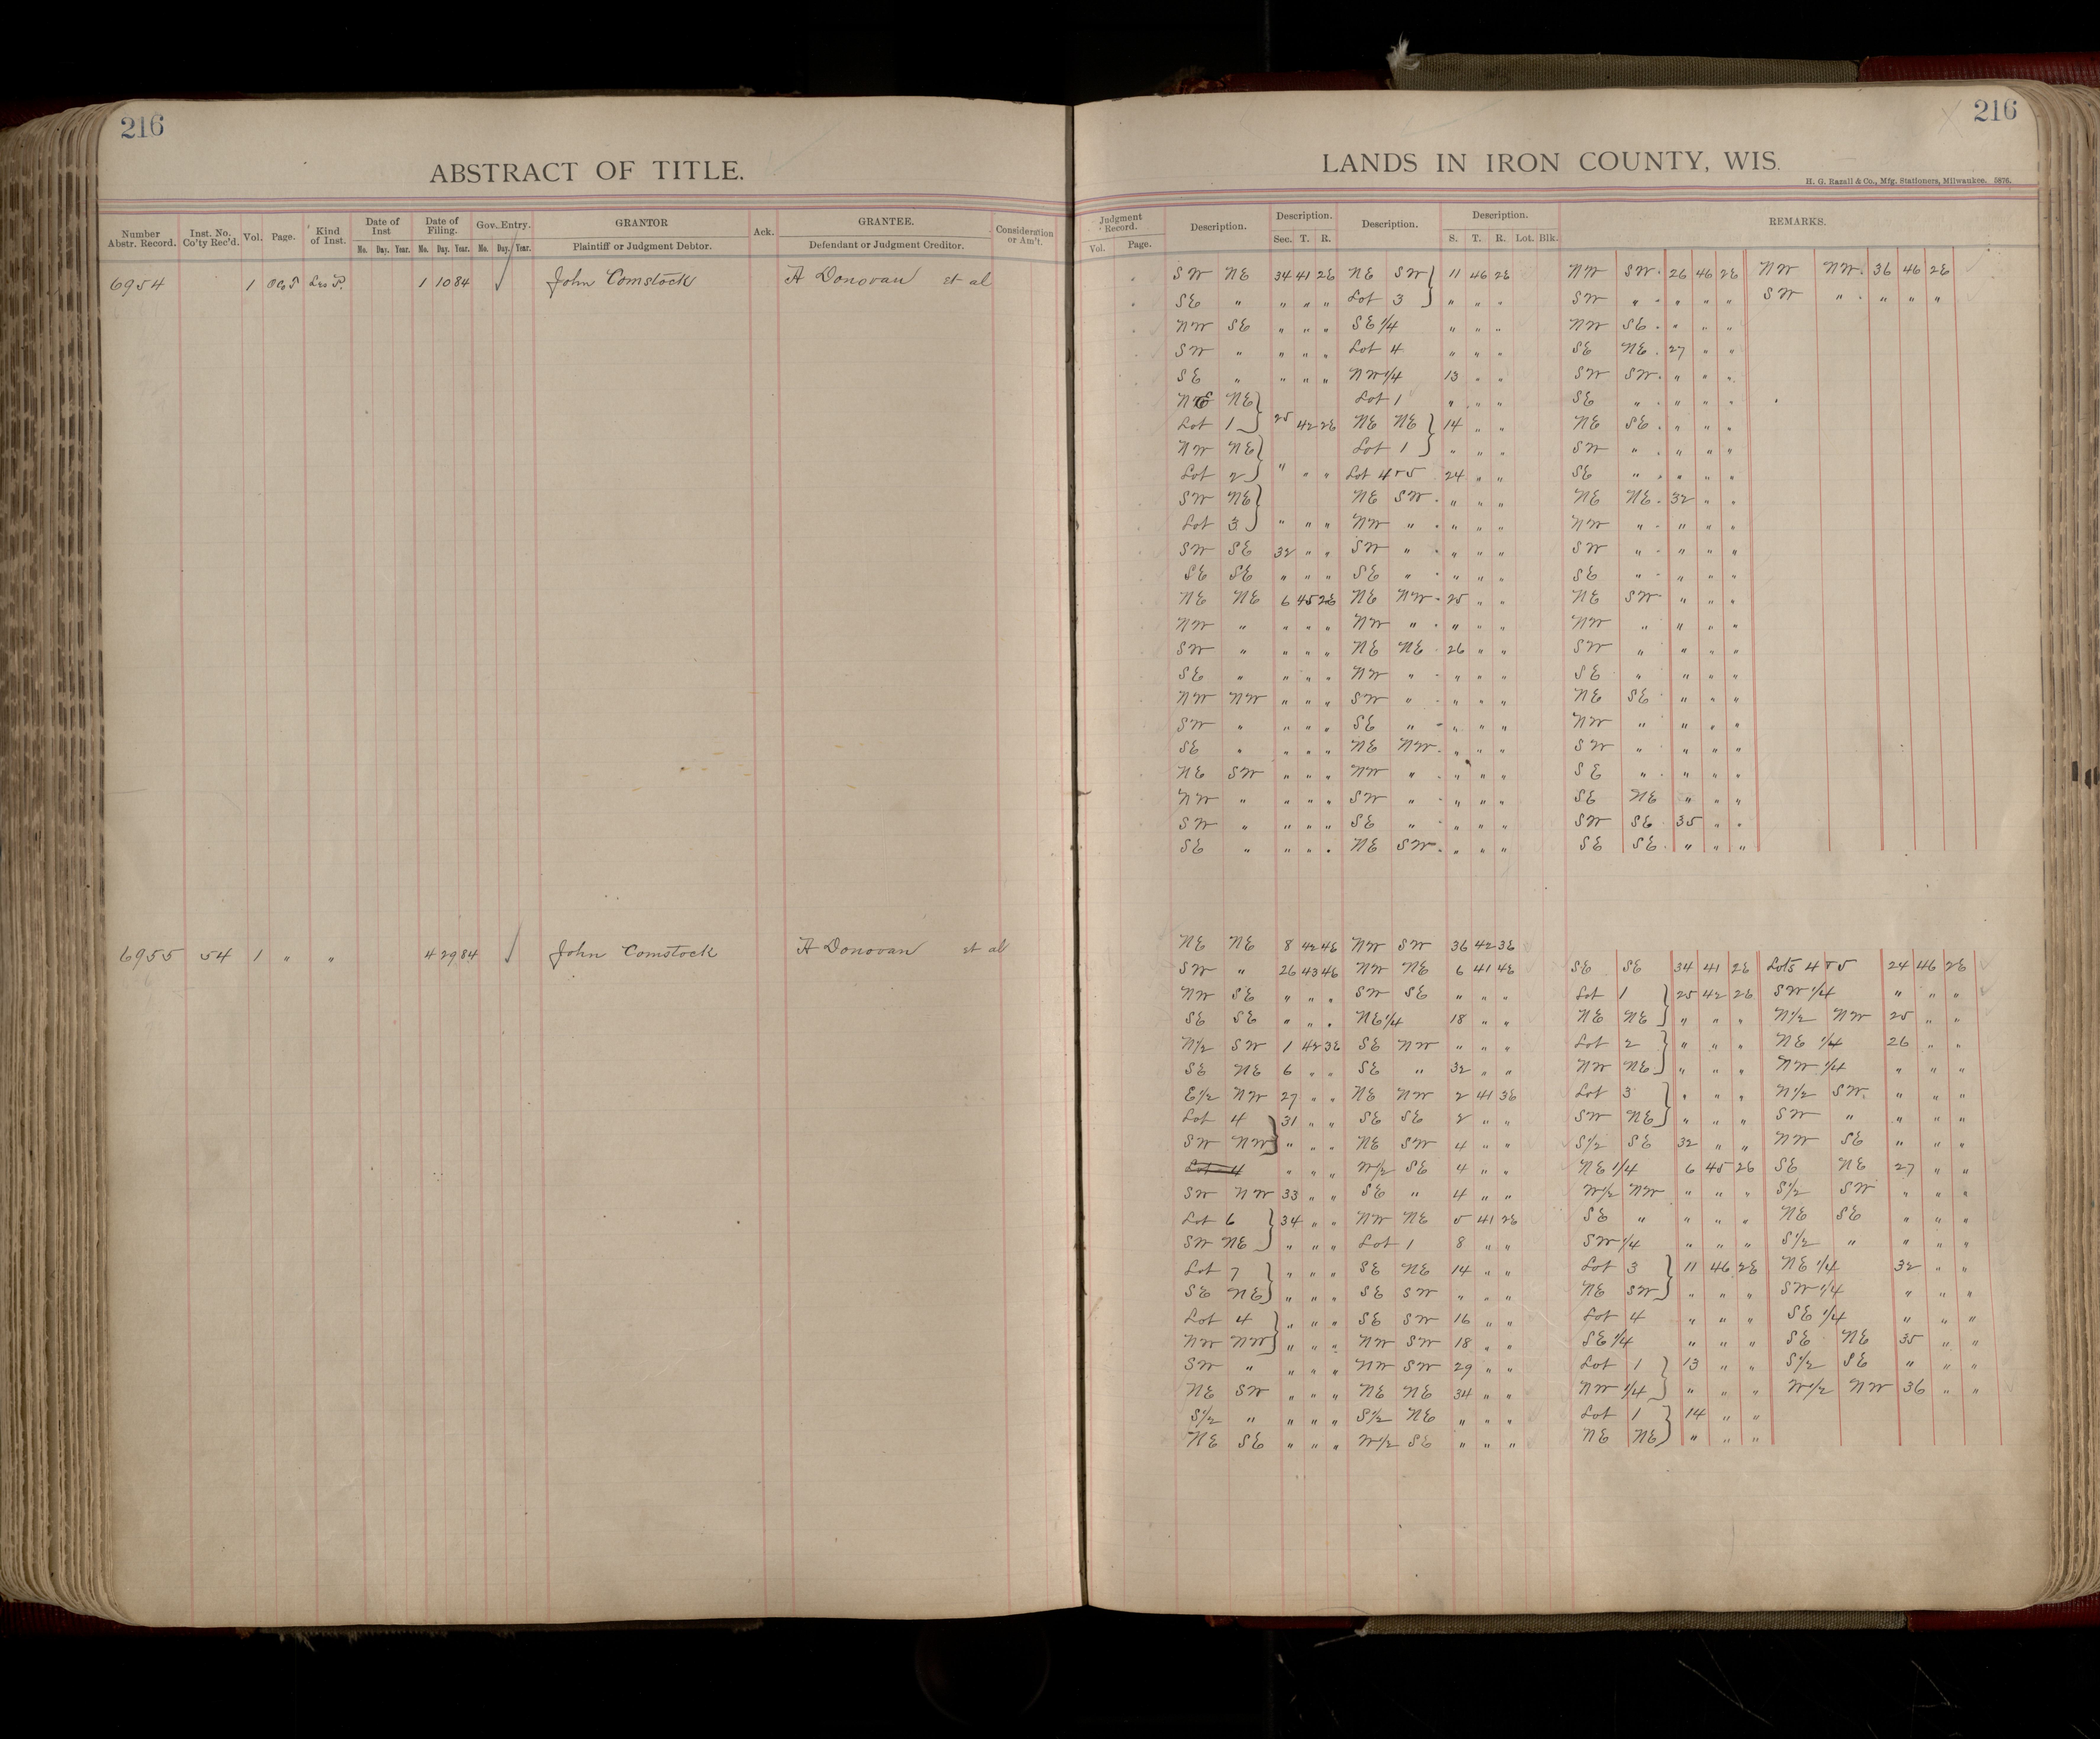 216
ABSTRACT OF TITLE.
Number Abstr. Record. Inst. No. Co'ty Rec'd. Vol. Page. Kind of Inst. Date of Inst Date of Filing. Gov. Entry. GRANTOR Ack. GRANTEE. Consideration or Am't.
Mo. Day. Year. Mo. Day. Year. Mo. Day. Year. Plaintiff or Judgment Debtor. Defendant or Judgment Creditor.
6954 1 1 10 84 John Comstock A Donovan et al
6955 54 1 " " 4 29 84 John Comstock A Donovan et al
216
LANDS IN IRON COUNTY, WIS.
H. G. Razall & Co., Mfg. Stationers, Milwaukee. 5876.
Judgment Record. Description. Description. Description. Description. REMARKS.
Vol. Page. Sec. T. R. S. T. R. Lot. Blk.
SW NE 34 41 2E NE SW } 11 46 2E NW SW 26 46 2E NW NW 36 46 2E
SE " " " " Lot 3 } " " " SW " " " " SW " " " "
NW SE " " " SE 1/4 " " " NW SE " " "
SW " " " " Lot 4 " " " SE NE 27 " "
SE " " " " NW 1/4 13 " " SW SW " " "
NE } Lot 1 " " " SE " " " "
Lot 1 } 25 42 2E NE NE } 14 " " NE SE " " "
NW NE } Lot 1 } " " " SW " " " "
Lot 2 } " " " Lot 4 & 5 24 " " SE " " " "
SW NE } NE SW " " " NE NE 32 " "
Lot 3 } " " " NW " " " " NW " " " "
SW SE 32 " " SW " " " " SW " " " "
SE SE " " " SE " " " " SE " " " "
NE NE 6 45 2E NE NW 25 " " NE SW " " "
NW " " " " NW " " " " NW " " " "
SW " " " " NE NE 26 " " SW " " " "
SE " " " " NW " " " " SE " " " "
NW NW " " " SW " " " " NE SE " " "
SW " " " " SE " " " " NW " " " "
SE " " " " NE NW " " " SW " " " "
NE SW " " " NW " " " " SE " " " "
NW " " " " SW " " " " SE NE " " "
SW " " " " SE " " " " SW SE 35 " "
SE " " " " NE SW " " " SE SE " " "
NE NE 8 42 4E NW SW 36 42 3E
SW " 26 43 4E NW NE 6 41 4E SE SE 34 41 2E Lots 4 & 5 24 46 2E
NW SE " " " SW SE " " " Lot 1 } 25 42 2E SW 1/4 " " "
SE SE " " " NE 1/4 18 " " NE NE } " " " N1/2 NW 25 " "
N1/2 SW 1 42 3E SE NW " " " Lot 2 } " " " NE 1/4 26 " "
SE NE 6 " " SE " 32 " " NW NE } " " " NW 1/4 " " "
E1/2 NW 27 " " NE NW 2 41 3E Lot 3 } " " " N1/2 SW " " "
Lot 4 } 31 " " SE SE 2 " " SW NE } " " " SW " " " "
SW NW } " " " NE SW 4 " " S1/2 SE 32 " " NW SE " " "
Lot 4 " " " W1/2 SE 4 " " NE 1/4 6 45 2E SE NE 27 " "
SW NW 33 " " SE " 4 " " W1/2 NW " " " S1/2 SW " " "
Lot 6 } 34 " " NW NE 5 41 2E SE " " " " NE SE " " "
SW NE } " " " Lot 1 8 " " SW 1/4 " " " S1/2 " " " "
Lot 7 } " " " SE NE 14 " " Lot 3 } 11 46 2E NE 1/4 32 " "
SE NE } " " " SE SW " " " NE SW } " " " SW 1/4 " " "
Lot 4 } " " " SE SW 16 " " Lot 4 " " " SE 1/4 " " "
NW NW } " " " NW SW 18 " " SE 1/4 " " " SE NE 35 " "
SW " " " " NW SW 29 " " Lot 1 } 13 " " S1/2 SE " " "
NE SW " " " NE NE 34 " " NW 1/4 } " " " W1/2 NW 36 " "
S1/2 " " " " S1/2 NE " " " Lot 1 } 14 " "
NE SE " " " W1/2 SE " " " NE NE } " " "